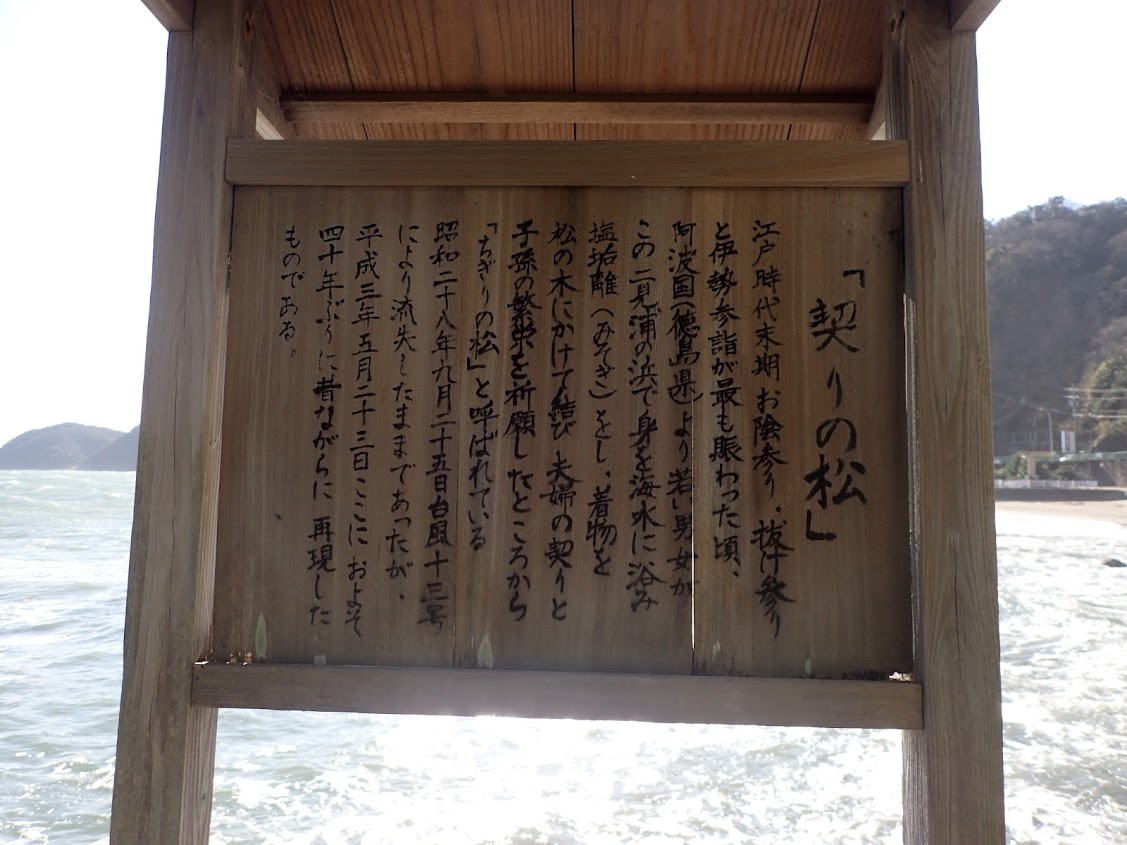 「契りの松」
江戸時代末期 お陰参り、抜け参り
と伊勢参詣が最も賑わった頃、
阿波国(徳島県)より若い男女が
この二見浦の浜で身を海水に浴み
塩垢離(みそぎ)をし、着物を
松の木にかけて結び 夫婦の契りと
子孫の繁栄を祈願したところから
「ちぎりの松」と呼ばれている
昭和二十八年九月二十五日台風十三号
により流失したままであったが、
平成三年五月二十三日ここに およそ
四十年ぶりに昔ながらに 再現した
ものである。